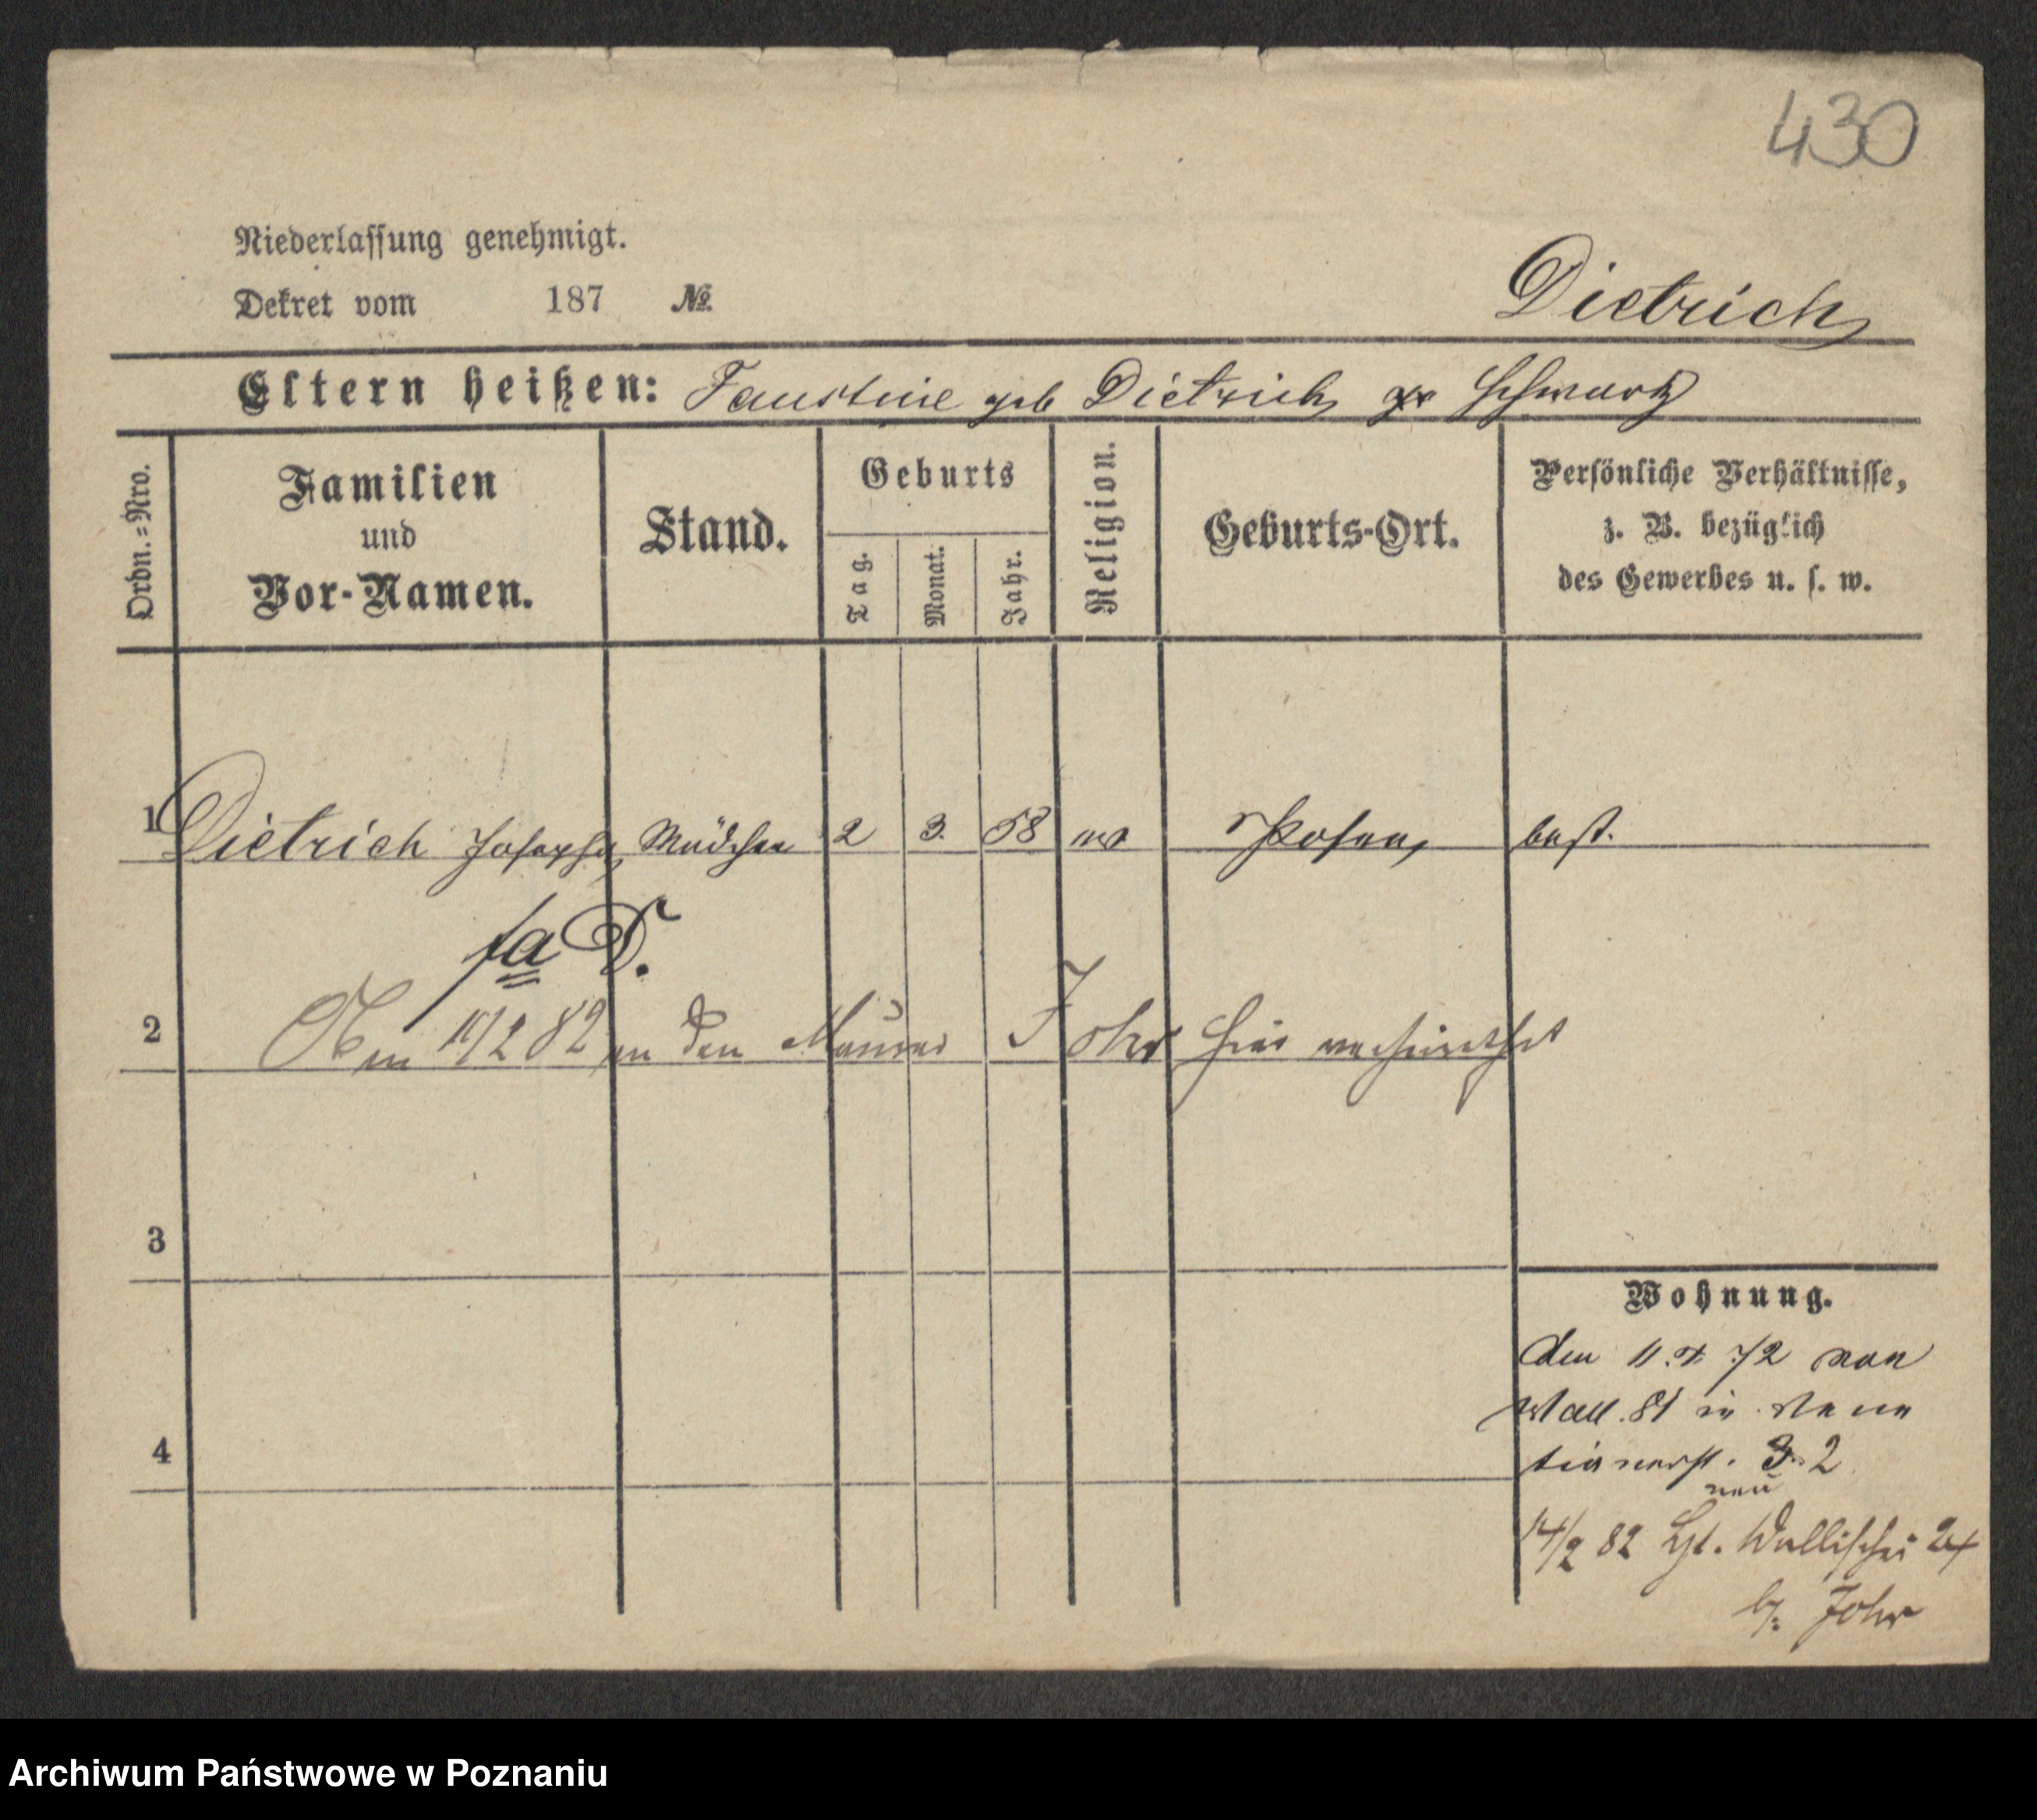 430
Niederlassung genehmigt.
Dekret vom 187 №
Dietrich
Eltern heißen: Faustine geb Dietrich Schwartz
Ordn.=Nro.
Familien
und
Vor-Namen.
Stand.
Geburts
Tag.
Monat.
Jahr.
Religion.
Geburts-Ort.
Persönliche Verhältnisse,
z. B. bezüglich
des Gewerbes u. s. w.
1 Dietrich Josepha Mädchen 2 3. 58 Posen,
fa D.
2 82 an den Maurer Johr hier verheirathet
3
Wohnung.
den 11. 72 von
Wall. 81 in
4 2
neu
14/2 82 Wallischei 24
b/. Johr
Archiwum Państwowe w Poznaniu